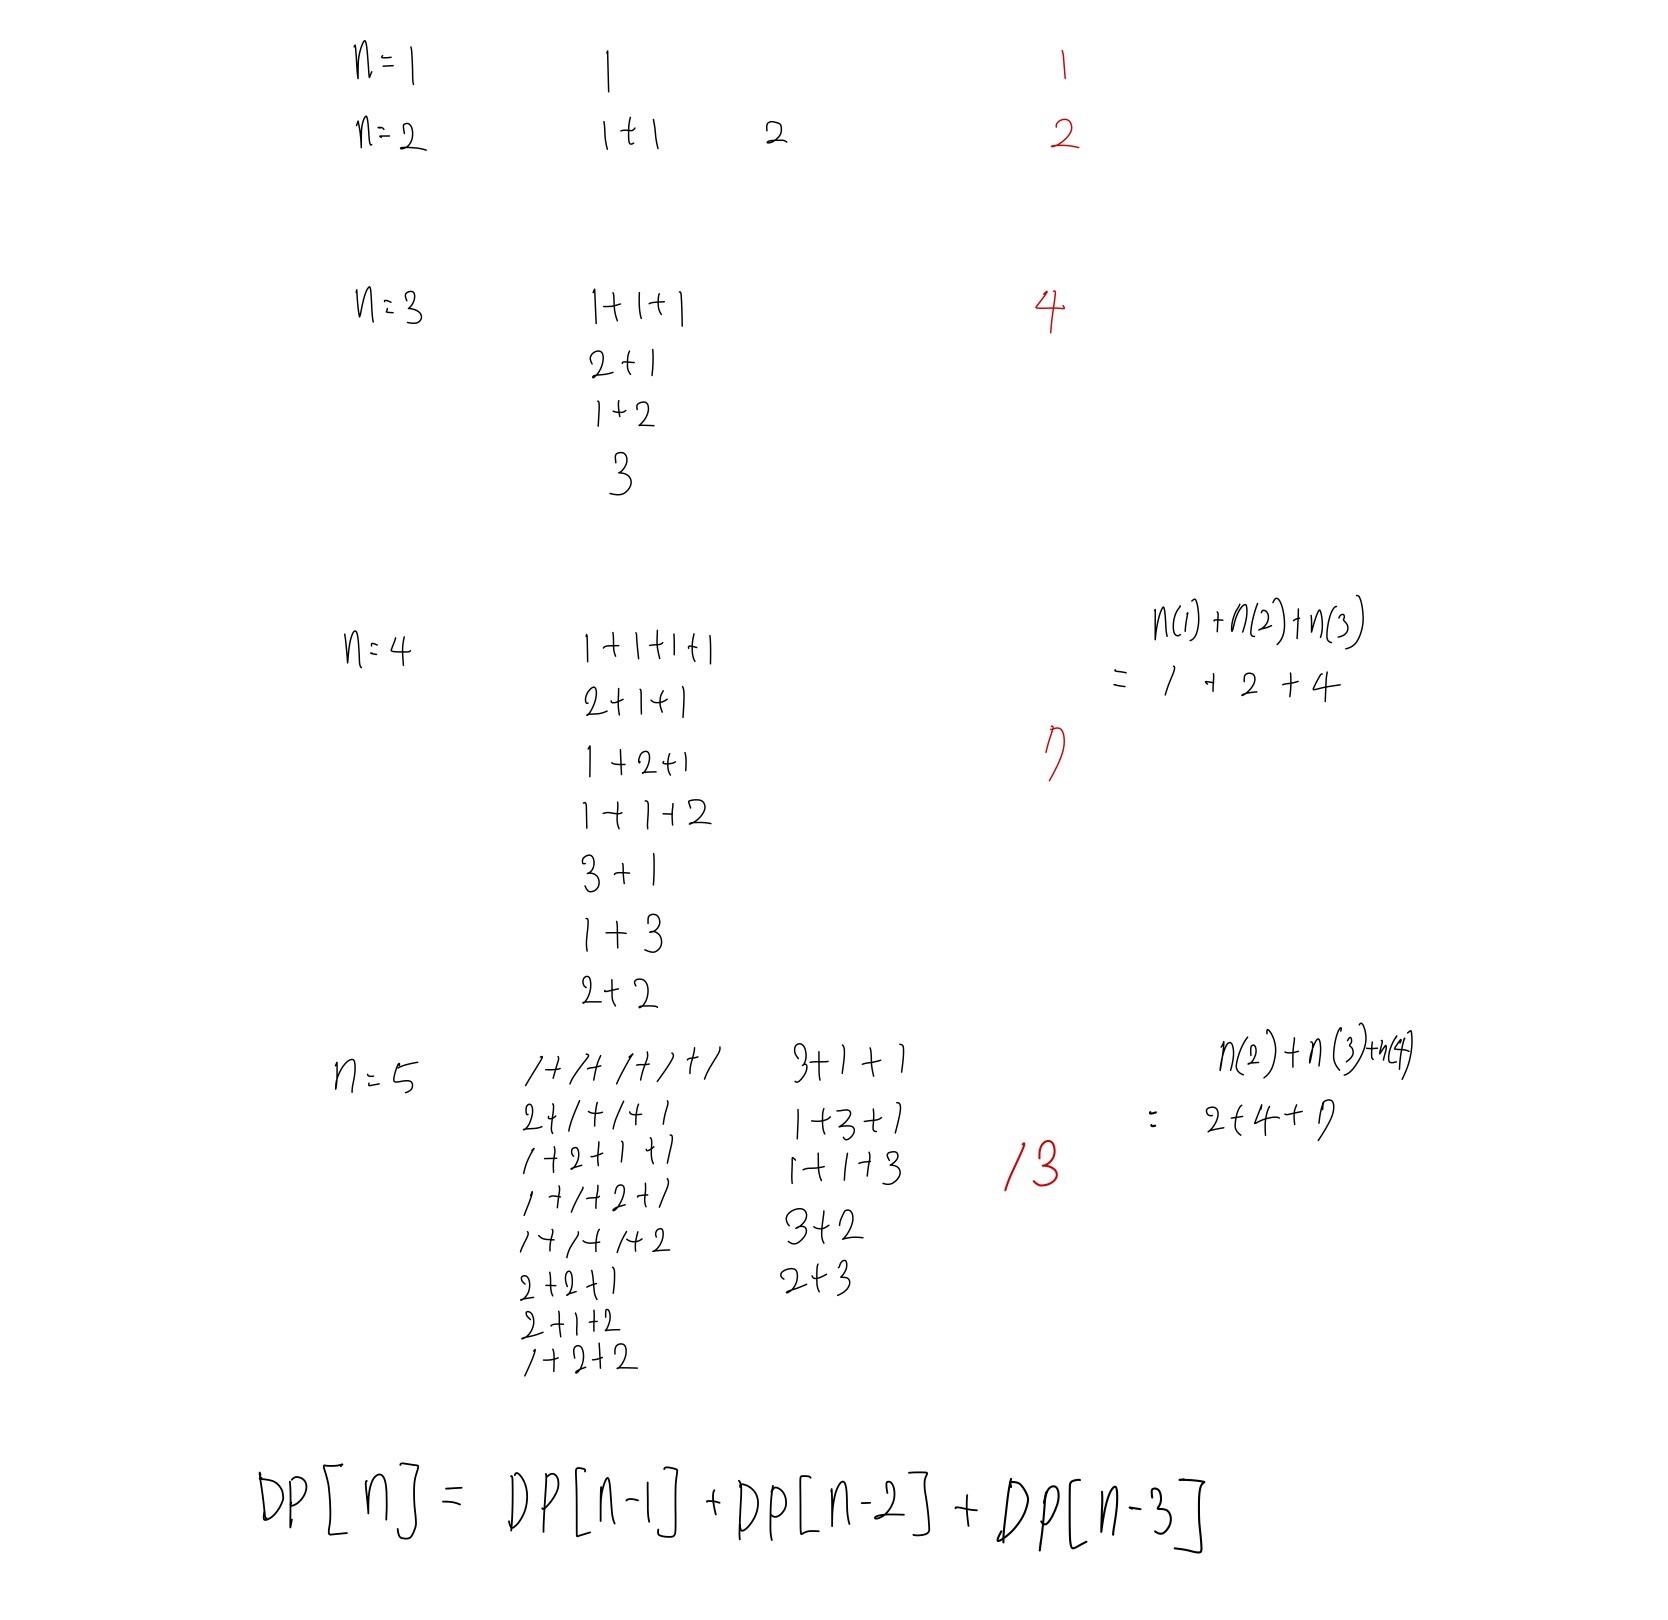 n=1 1 1
n=2 1+1 2 2
n=3 1+1+1 4
2+1
1+2
3
n(1)+n(2)+n(3)
n=4 1+1+1+1
= 1+2+4
2+1+1
7
1+2+1
1+1+2
3+1
1+3
2+2
n(2)+n(3)+n(4)
n=5 1+1+1+1+1 3+1+1
2+1+1+1 1+3+1 = 2+4+7
1+2+1+1 1+1+3 13
1+1+2+1
1+1+1+2 3+2
2+2+1 2+3
2+1+2
1+2+2
DP[n] = DP[n-1] + DP[n-2] + DP[n-3]